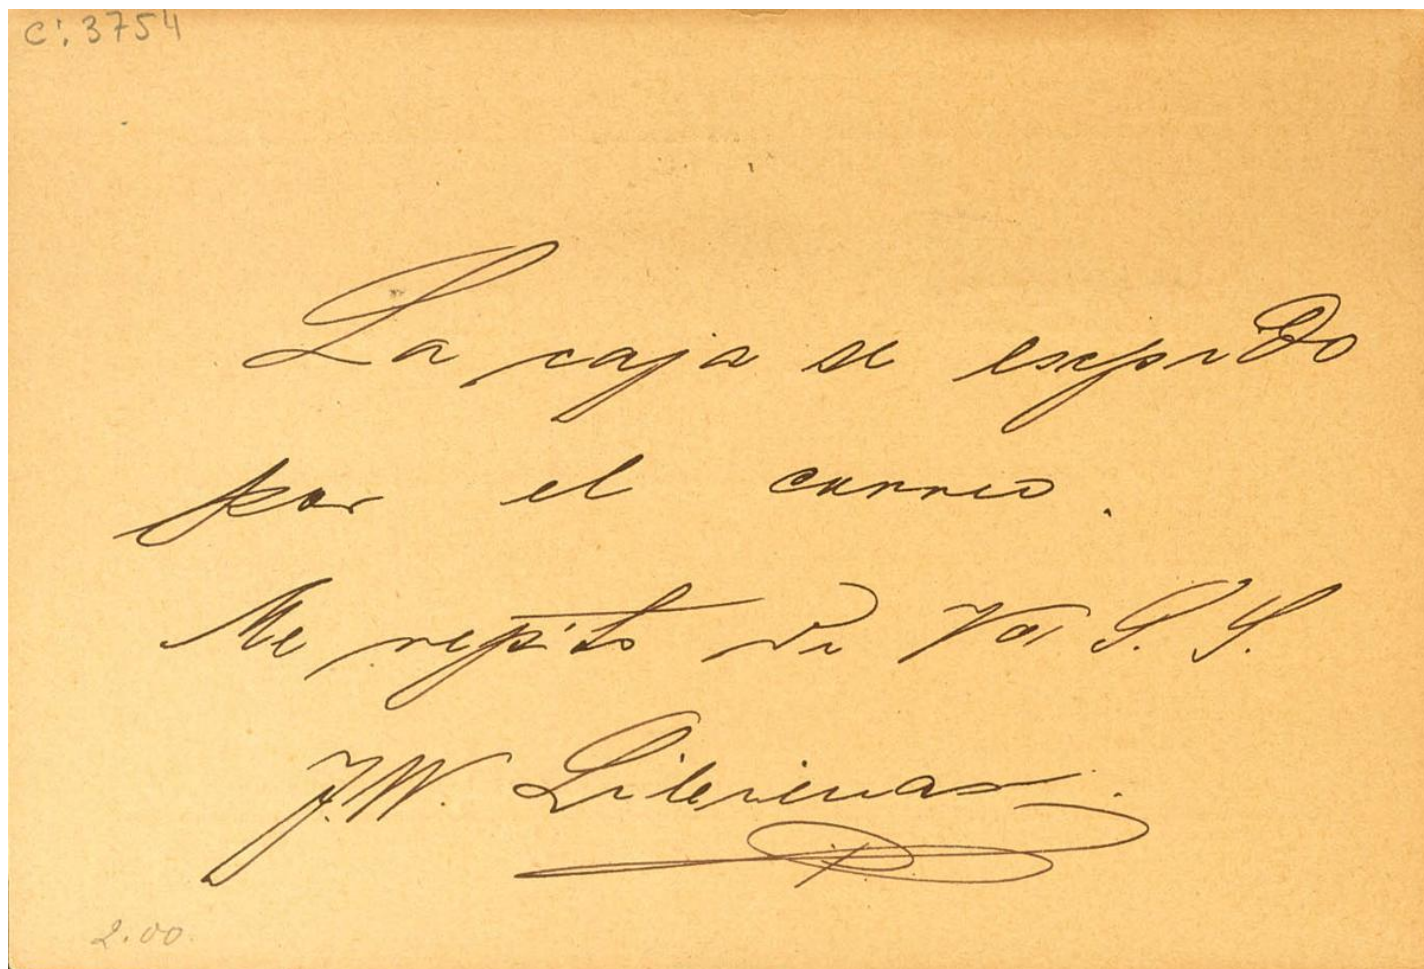 C: 3754
La caja se expido
por el correo.
Me repito de Vd. S. S.
J.W.
2.00